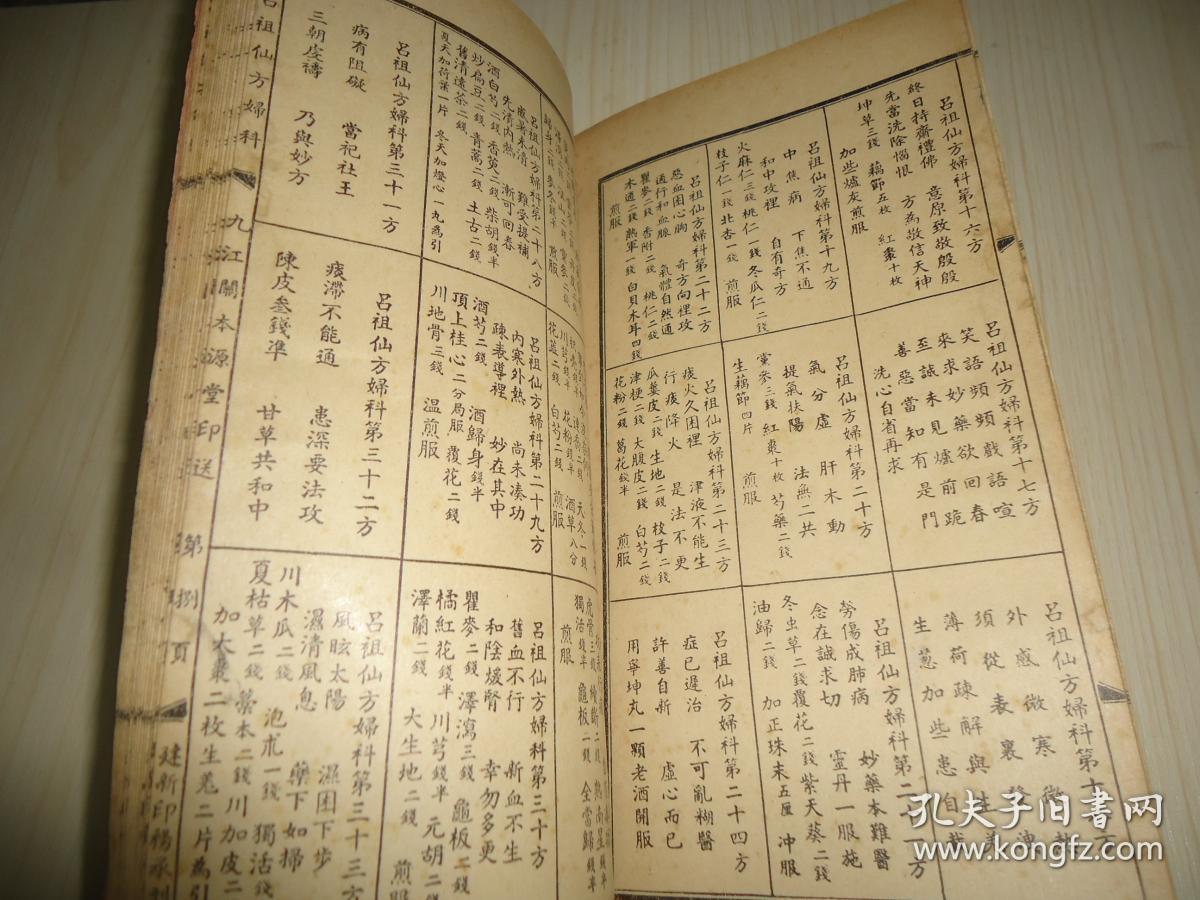 呂祖仙方婦科第十六方
終日持齋禮佛　意原致敬殷殷
先當洗除惱恨　方為敬信天神
坤草三錢　藕節五枚　紅棗十枚
加些爐灰煎服
呂祖仙方婦科第十七方
笑語頻頻戲語喧
來求妙藥欲回春
至誠未見爐前跪
善惡當知有是門
洗心自省再求
呂祖仙方婦科第十
外感微寒微
須從表裏
薄荷疎解與生
生蔥加些患自
呂祖仙方婦科第十九方
中焦病　下焦不通
和中攻裡　自有奇方
火麻仁三錢　桃仁一錢　冬瓜仁二錢
枝子仁一錢　北杏一錢　煎服
呂祖仙方婦科第二十方
氣分虛　肝木動
提氣扶陽　法無二共
黨參三錢　紅棗十枚　芍藥二錢
生藕節四片　煎服
呂祖仙方婦科第二十一方
勞傷成肺病　妙藥本難醫
念在誠求切　靈丹一服施
冬虫草二錢　覆花二錢　紫天葵二錢
油歸二錢　加正珠末五厘　冲服
呂祖仙方婦科第二十二方
惡血困心胸　奇方向裡攻
通行和血脉　氣體自然通
瞿麥二錢　香附二錢　桃仁二錢
木通二錢　熟軍一錢　白貝木耳四錢
煎服
呂祖仙方婦科第二十三方
痰火久困裡　津液不能生
行痰降火　是法不更
瓜蔞皮二錢　生地二錢　枝子二錢
津梗二錢　大腹皮二錢　白芍二錢
花粉二錢　葛花錢半　煎服
呂祖仙方婦科第二十四方
症已遲治　不可亂糊醫
許善自新　虛心而已
用寧坤丸一顆老酒開服
呂祖仙方婦科第二十八方
感暑未清　難受提補
先清内熱　漸可回春
酒白芍二錢　香茰二錢　柴胡錢半
炒扁豆二錢　青蒿二錢　土古二錢
舊清遠茶二錢
夏天加荷葉一片　冬天加燈心一九為引
呂祖仙方婦科第二十九方
内寒外熱　尚未凑功
疎表導裡　妙在其中
酒芍二錢　酒歸身錢半
頂上桂心二分局服　覆花二錢
川地骨三錢　溫煎服
呂祖仙方婦科第三十方
舊血不行　新血不生
和陰煖腎　幸勿多更
瞿麥二錢　澤瀉三錢　龜板二錢
橘紅花錢半　川芎錢半　元胡二錢
澤蘭二錢　大生地二錢　煎服
呂祖仙方婦科第三十一方
病有阻礙　當祀社王
三朝虔禱　乃與妙方
呂祖仙方婦科第三十二方
痰滯不能通　患深要法攻
陳皮叁錢準　甘草共和中
呂祖仙方婦科第三十三方
風眩太陽　濕困下步
濕清風息　藥下如掃
川木瓜二錢　泡朮一錢　獨活錢
夏枯草二錢　藁本二錢　川加皮二
加大棗二枚生羗二片為引
呂祖仙方婦科
九江關本源堂印送
第捌頁
孔夫子旧書网
www.kongfz.com